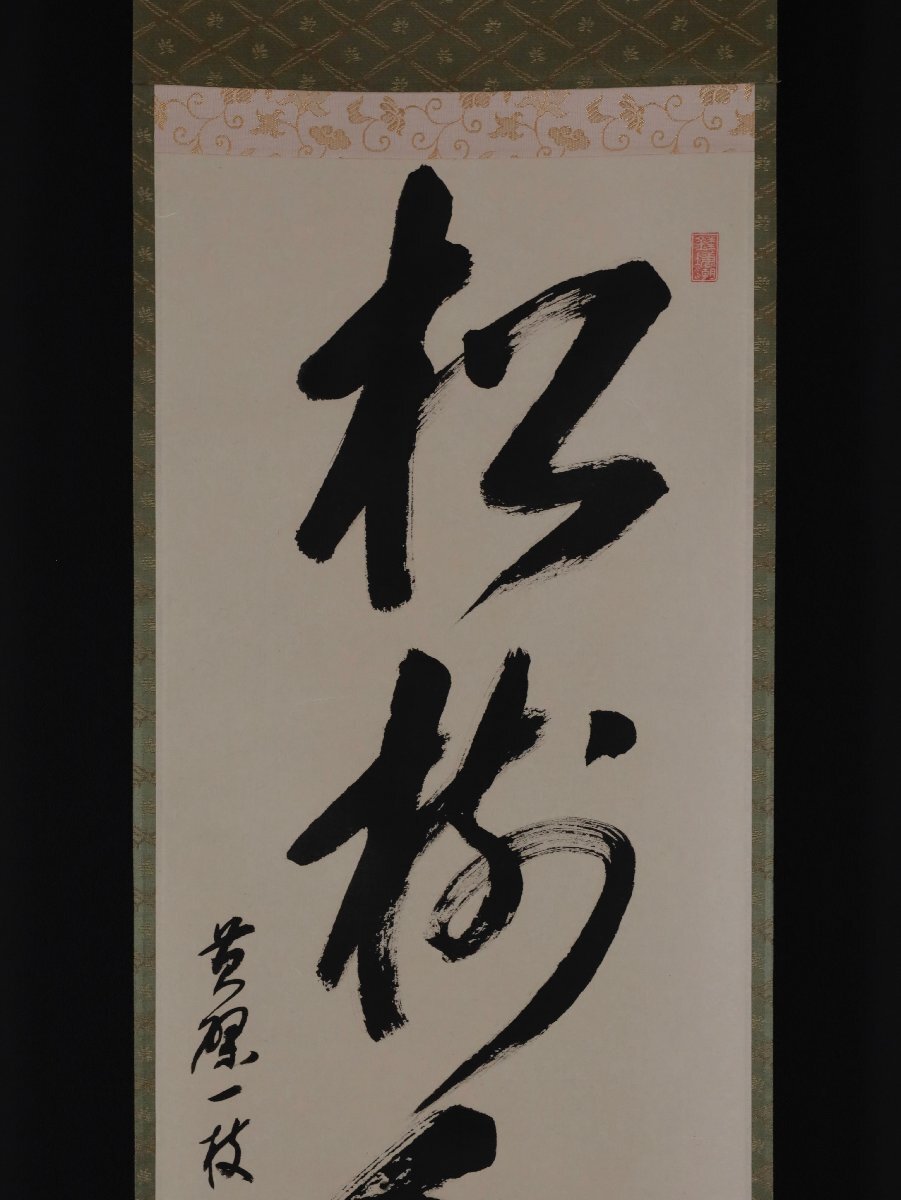 松樹
黄檗一枝